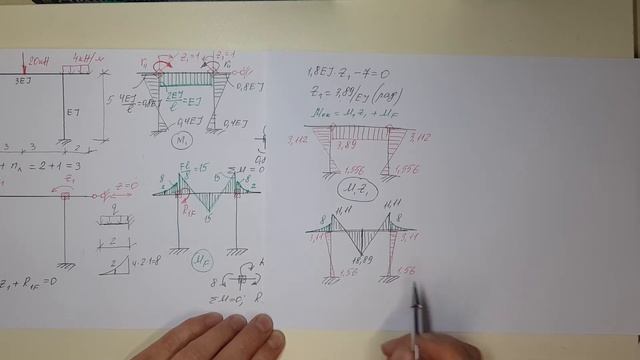 20кН
4кН/м
3EJ
EJ
5
3
3
2
+ nл = 2+1 = 3
Z1
Z=0
q
2
2
4·2·1=8
Z1 + R1F = 0
Z1=1
Z1=1
4EJ/ℓ = 0,8EJ
2EJ/ℓ = EJ
0,8EJ
0,4EJ
0,4EJ
M1
Fℓ/8 = 15
15
ΣM = 0
8
8
2
R1F
15
MF
8
ΣM=0;
1,8EJ·Z1 − 7 = 0
Z1 = 3,89/EJ (рад)
Mок = M1Z1 + MF
3,112
3,112
1,556
1,556
M1Z1
11,11
11,11
8
8
3,11
3,11
18,89
1,56
1,56